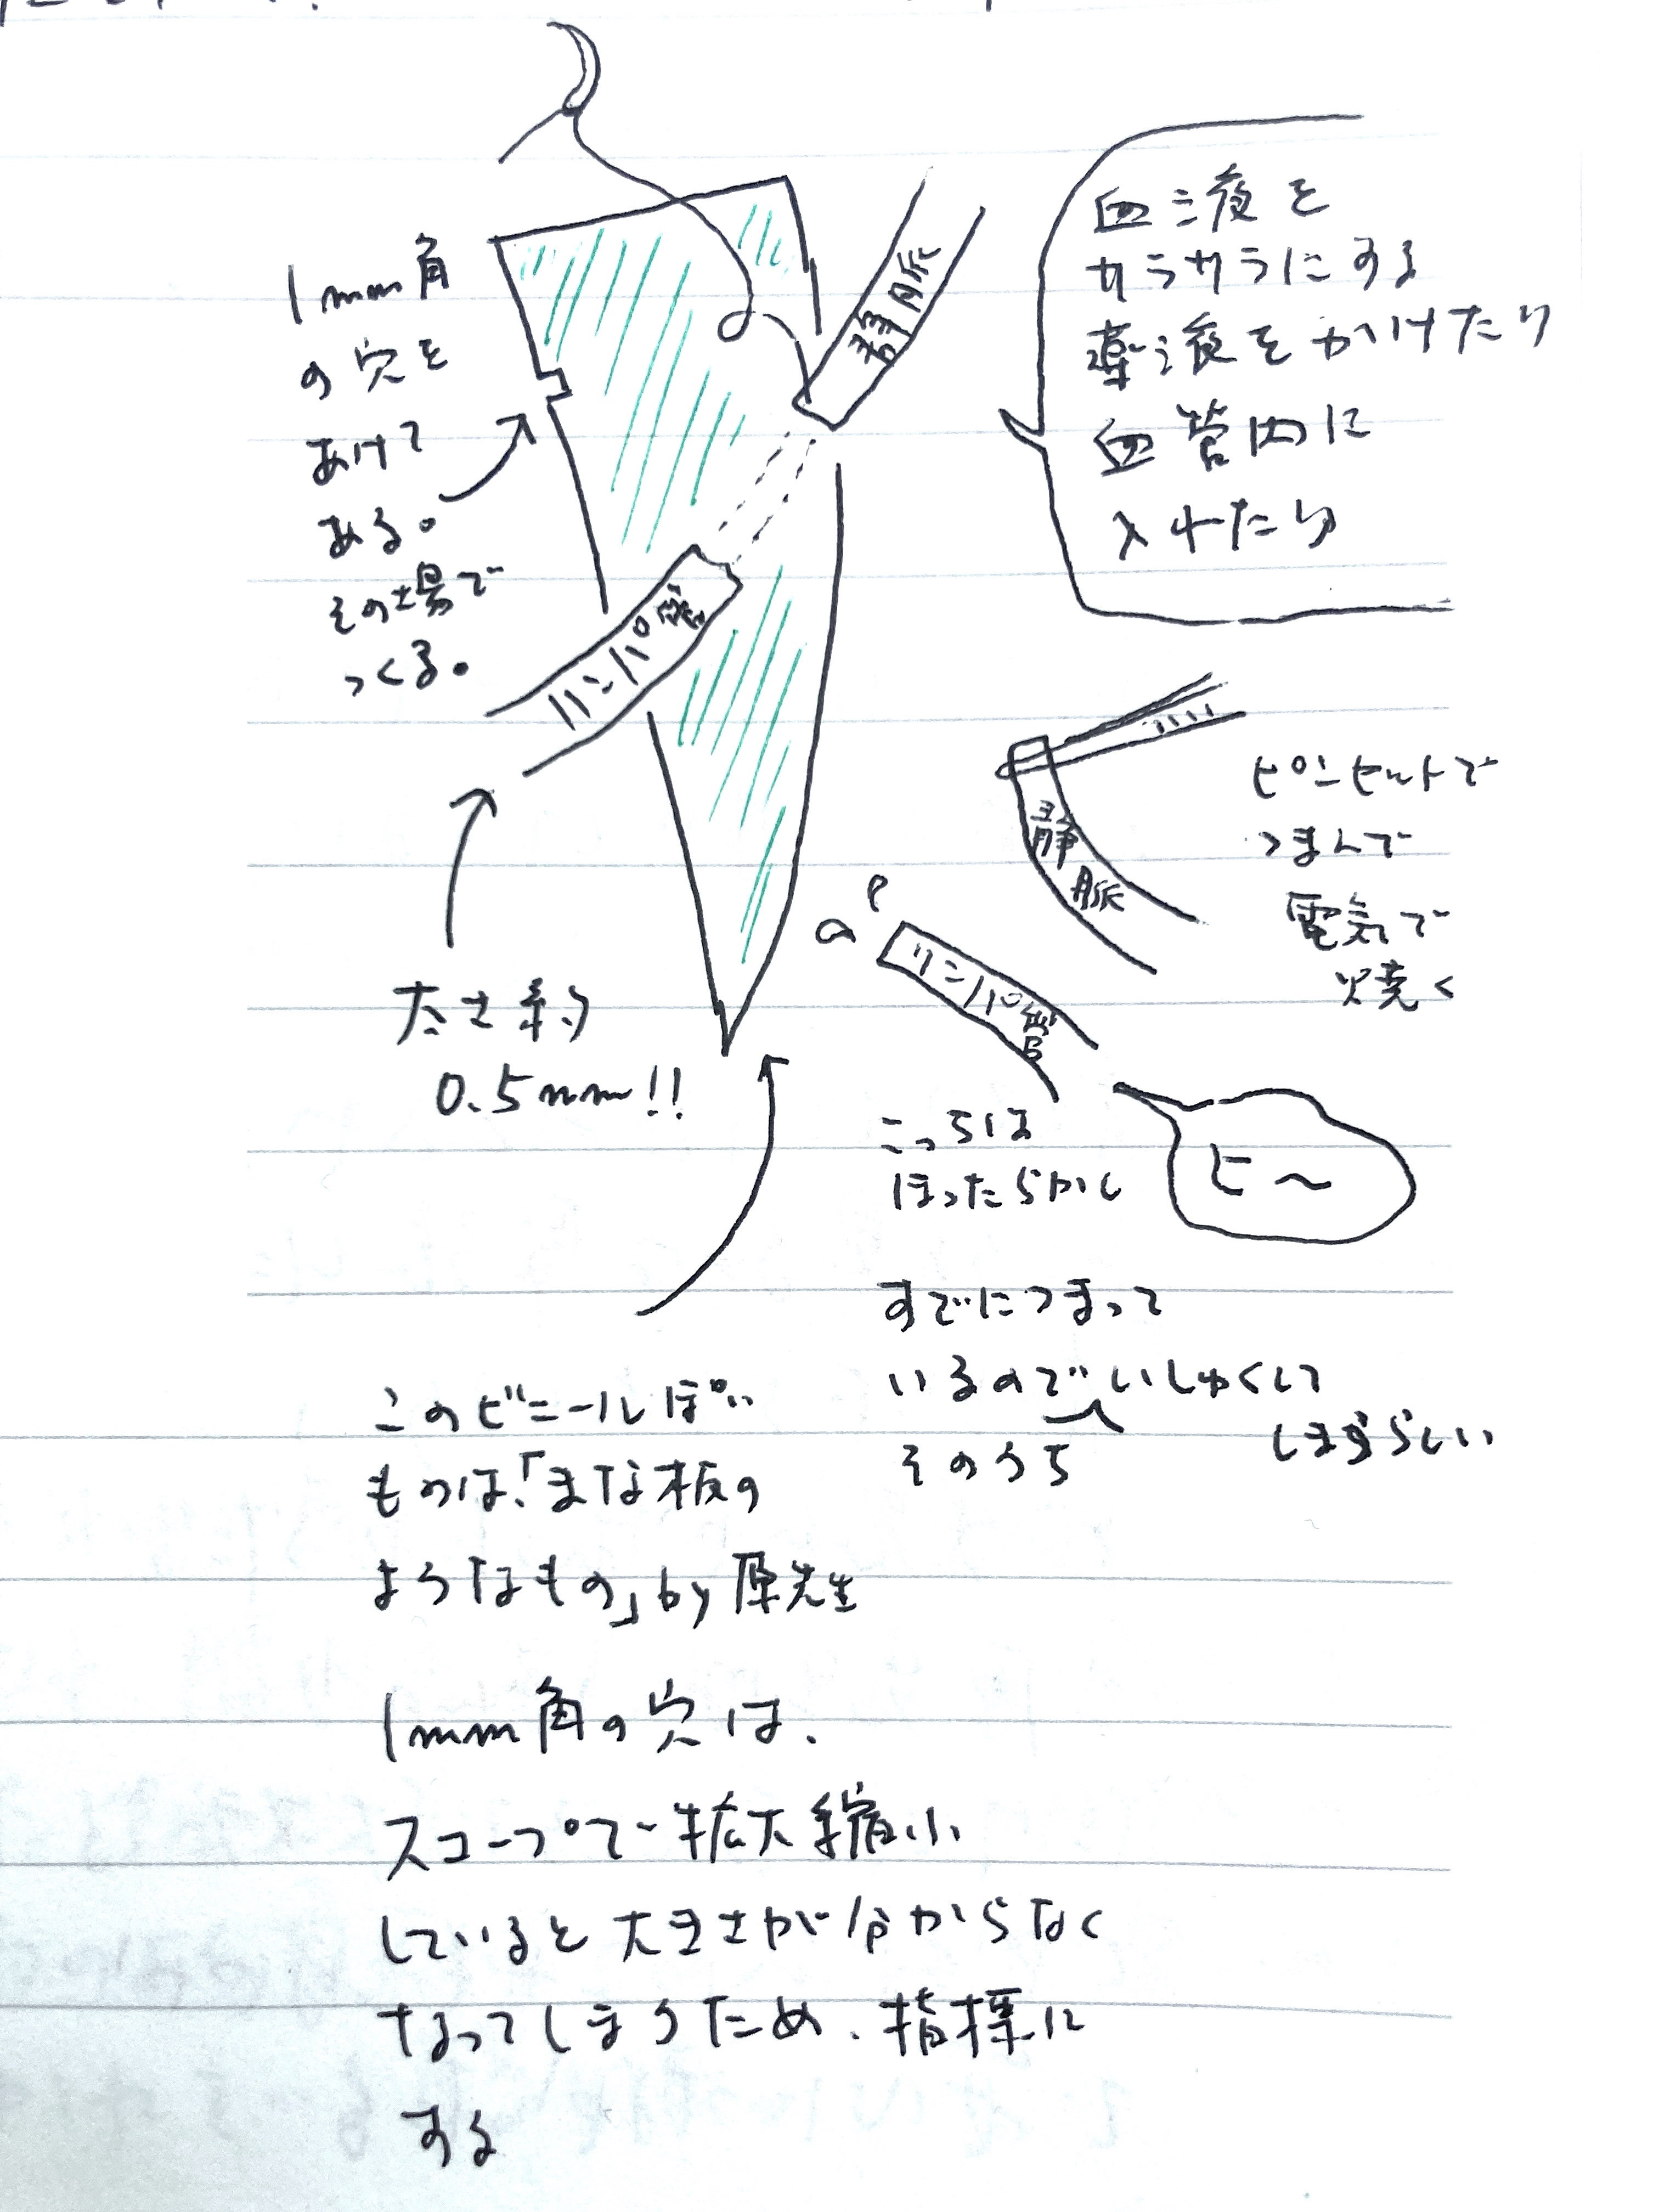 1mm角
の穴を
あけて
ある。
その場で
つくる。
静脈
リンパ管
血液を
サラサラにする
薬液をかけたり
血管内に
入れたり
太さ約
0.5mm!!
静脈
ピンセットで
つまんで
電気で
焼く
リンパ管
ピ〜
こっちは
ほったらかし
すでにつまって
いるのでいしゅくして
そのうち
しまうらしい
このビニールぽい
ものは、「まな板の
ようなもの」by原先生
1mm角の穴は、
スコープで拡大縮小
していると大きさが分からなく
なってしまうため、指標に
する